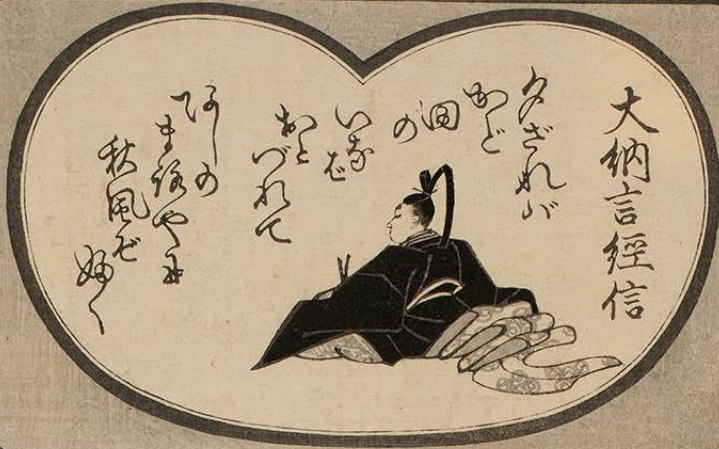 大納言經信
夕ざれば
かど
田
の
いなば
おと
づれて
あしの
まろやに
秋風ぞ
吹く